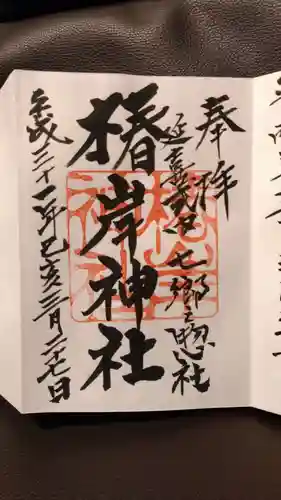 奉拝
延喜式内七郷之惣社
椿岸神社
平成三十一年己亥二月二十七日